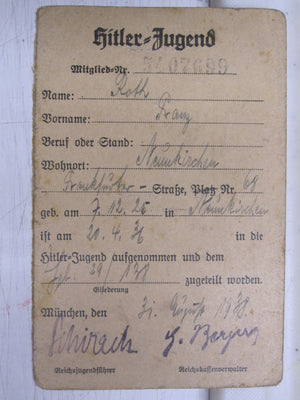 Hitler-Jugend
Mitglied-Nr.
Name: Roth
Vorname: Franz
Beruf oder Stand:
Wohnort: Neunkirchen
Frankfurter - Straße, Platz Nr. 69
geb. am 7.12.25 in Neunkirchen
ist am 20.4.36 in die
Hitler-Jugend aufgenommen und dem
29/138 zugeteilt worden.
Gliederung
München, den 31. August 1938.
Schirach
Reichsjugendführer Reichskassenverwalter